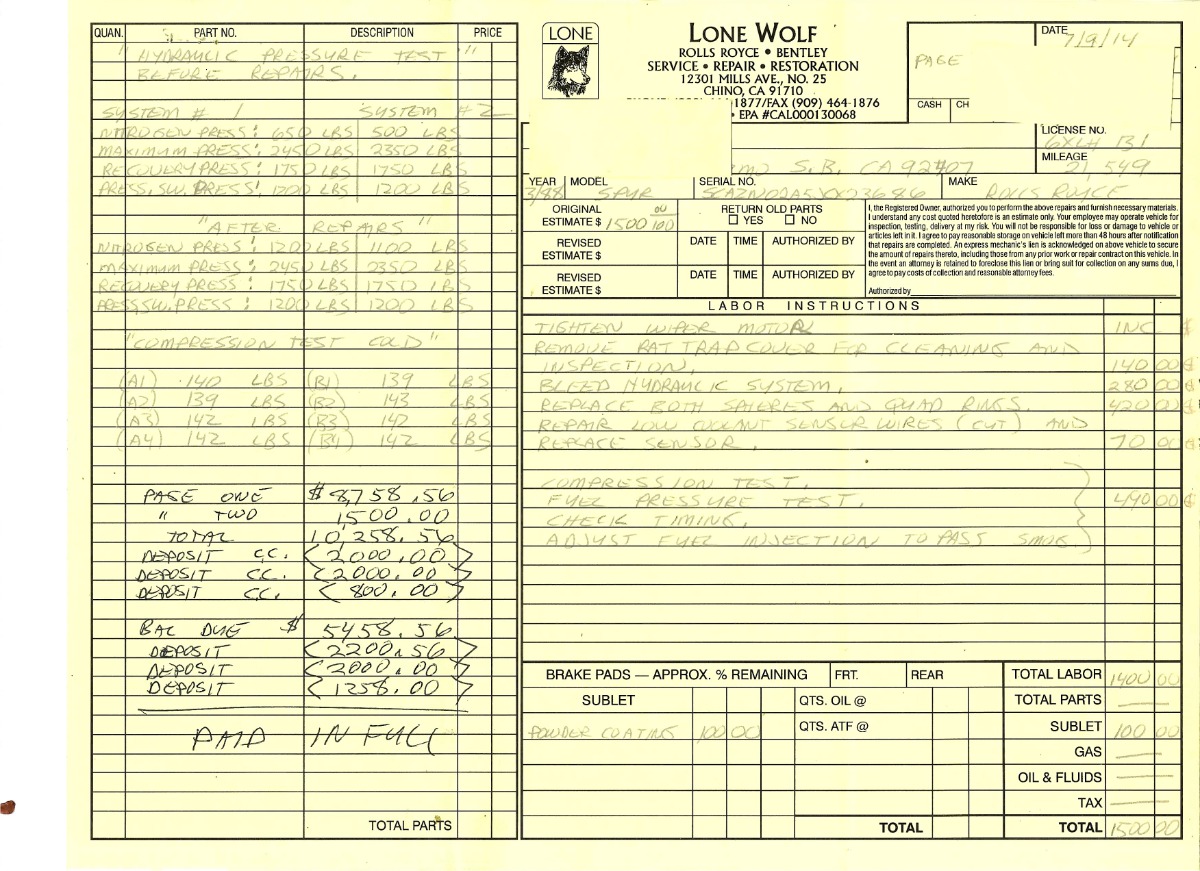 QUAN. PART NO. DESCRIPTION PRICE
" HYDRAULIC PRESSURE TEST "
BEFORE REPAIRS.
SYSTEM # 1 SYSTEM # 2
NITROGEN PRESS: 650 LBS 500 LBS
MAXIMUM PRESS: 2450 LBS 2350 LBS
RECOVERY PRESS: 1750 LBS 1750 LBS
PRESS. SW. PRESS: 1200 LBS 1200 LBS
"AFTER REPAIRS"
NITROGEN PRESS: 1200 LBS 1100 LBS
MAXIMUM PRESS: 2450 LBS 2350 LBS
RECOVERY PRESS: 1750 LBS 1750 LBS
PRESS SW. PRESS: 1200 LBS 1200 LBS
"COMPRESSION TEST COLD"
(A1) 140 LBS (B1) 139 LBS
(A2) 139 LBS (B2) 143 LBS
(A3) 142 LBS (B3) 142 LBS
(A4) 142 LBS (B4) 142 LBS
PAGE ONE $ 8,758.56
" TWO 1,500.00
TOTAL 10,258.56
DEPOSIT CC. <2000.00>
DEPOSIT CC. <2000.00>
DEPOSIT CC. <800.00>
BAL DUE $ 5458.56
DEPOSIT <2200.56>
DEPOSIT <2000.00>
DEPOSIT <1258.00>
PAID IN FULL
TOTAL PARTS
LONE
LONE WOLF
ROLLS ROYCE • BENTLEY
SERVICE • REPAIR • RESTORATION
12301 MILLS AVE., NO. 25
CHINO, CA 91710
1877/FAX (909) 464-1876
• EPA #CAL000130068
DATE 7/9/14
PAGE
CASH CH
LICENSE NO.
6XLH 131
MILEAGE
S.B. CA 92407 21,549
YEAR MODEL SERIAL NO. MAKE
3/88 SPUR SCAZN02A5JCX23686 ROLLS ROYCE
ORIGINAL ESTIMATE $ 1500 00/100
RETURN OLD PARTS
YES NO
REVISED ESTIMATE $ DATE TIME AUTHORIZED BY
REVISED ESTIMATE $ DATE TIME AUTHORIZED BY
I, the Registered Owner, authorized you to perform the above repairs and furnish necessary materials.
I understand any cost quoted heretofore is an estimate only. Your employee may operate vehicle for
inspection, testing, delivery at my risk. You will not be responsible for loss or damage to vehicle or
articles left in it. I agree to pay reasonable storage on vehicle left more than 48 hours after notification
that repairs are completed. An express mechanic's lien is acknowledged on above vehicle to secure
the amount of repairs thereto, including those from any prior work or repair contract on this vehicle. In
the event an attorney is retained to foreclose this lien or bring suit for collection on any sums due, I
agree to pay costs of collection and reasonable attorney fees.
Authorized by
LABOR INSTRUCTIONS
TIGHTEN WIPER MOTOR INC
REMOVE RAT TRAP COVER FOR CLEANING AND
INSPECTION. 140 00
BLEED HYDRAULIC SYSTEM. 280 00
REPLACE BOTH SPHERES AND QUAD RINGS. 420 00
REPAIR LOW COOLANT SENSOR WIRES (CUT) AND
REPLACE SENSOR. 70 00
COMPRESSION TEST.
FUEL PRESSURE TEST. 490 00
CHECK TIMING.
ADJUST FUEL INJECTION TO PASS SMOG.
BRAKE PADS — APPROX. % REMAINING FRT. REAR TOTAL LABOR 1400 00
SUBLET QTS. OIL @ TOTAL PARTS —
POWDER COATING 100 00 QTS. ATF @ SUBLET 100 00
GAS —
OIL & FLUIDS —
TAX —
TOTAL TOTAL 1500 00